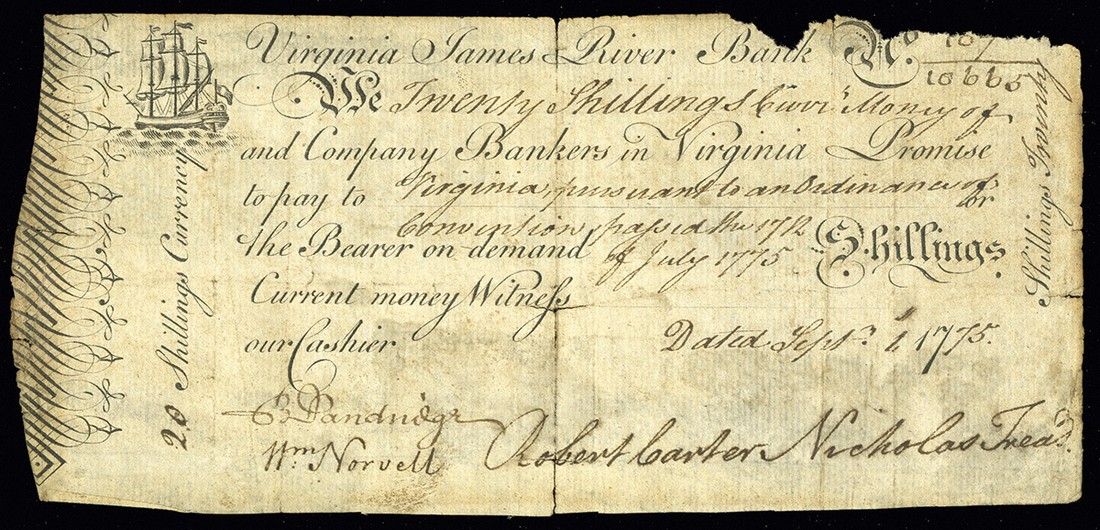 Virginia James River Bank No.
10665
We Twenty Shillings Curr.t Money of
and Company Bankers in Virginia Promise
to pay to Virginia, pursuant to an Ordinance of or
Convention passed the 17th
the Bearer on demand of July 1775 Shillings
Current money Witness
our Cashier
Dated Sept.r 1, 1775.
B Dandridge
Wm Norvell
Robert Carter Nicholas Trea.r
20 Shillings Currency
Shillings Twenty